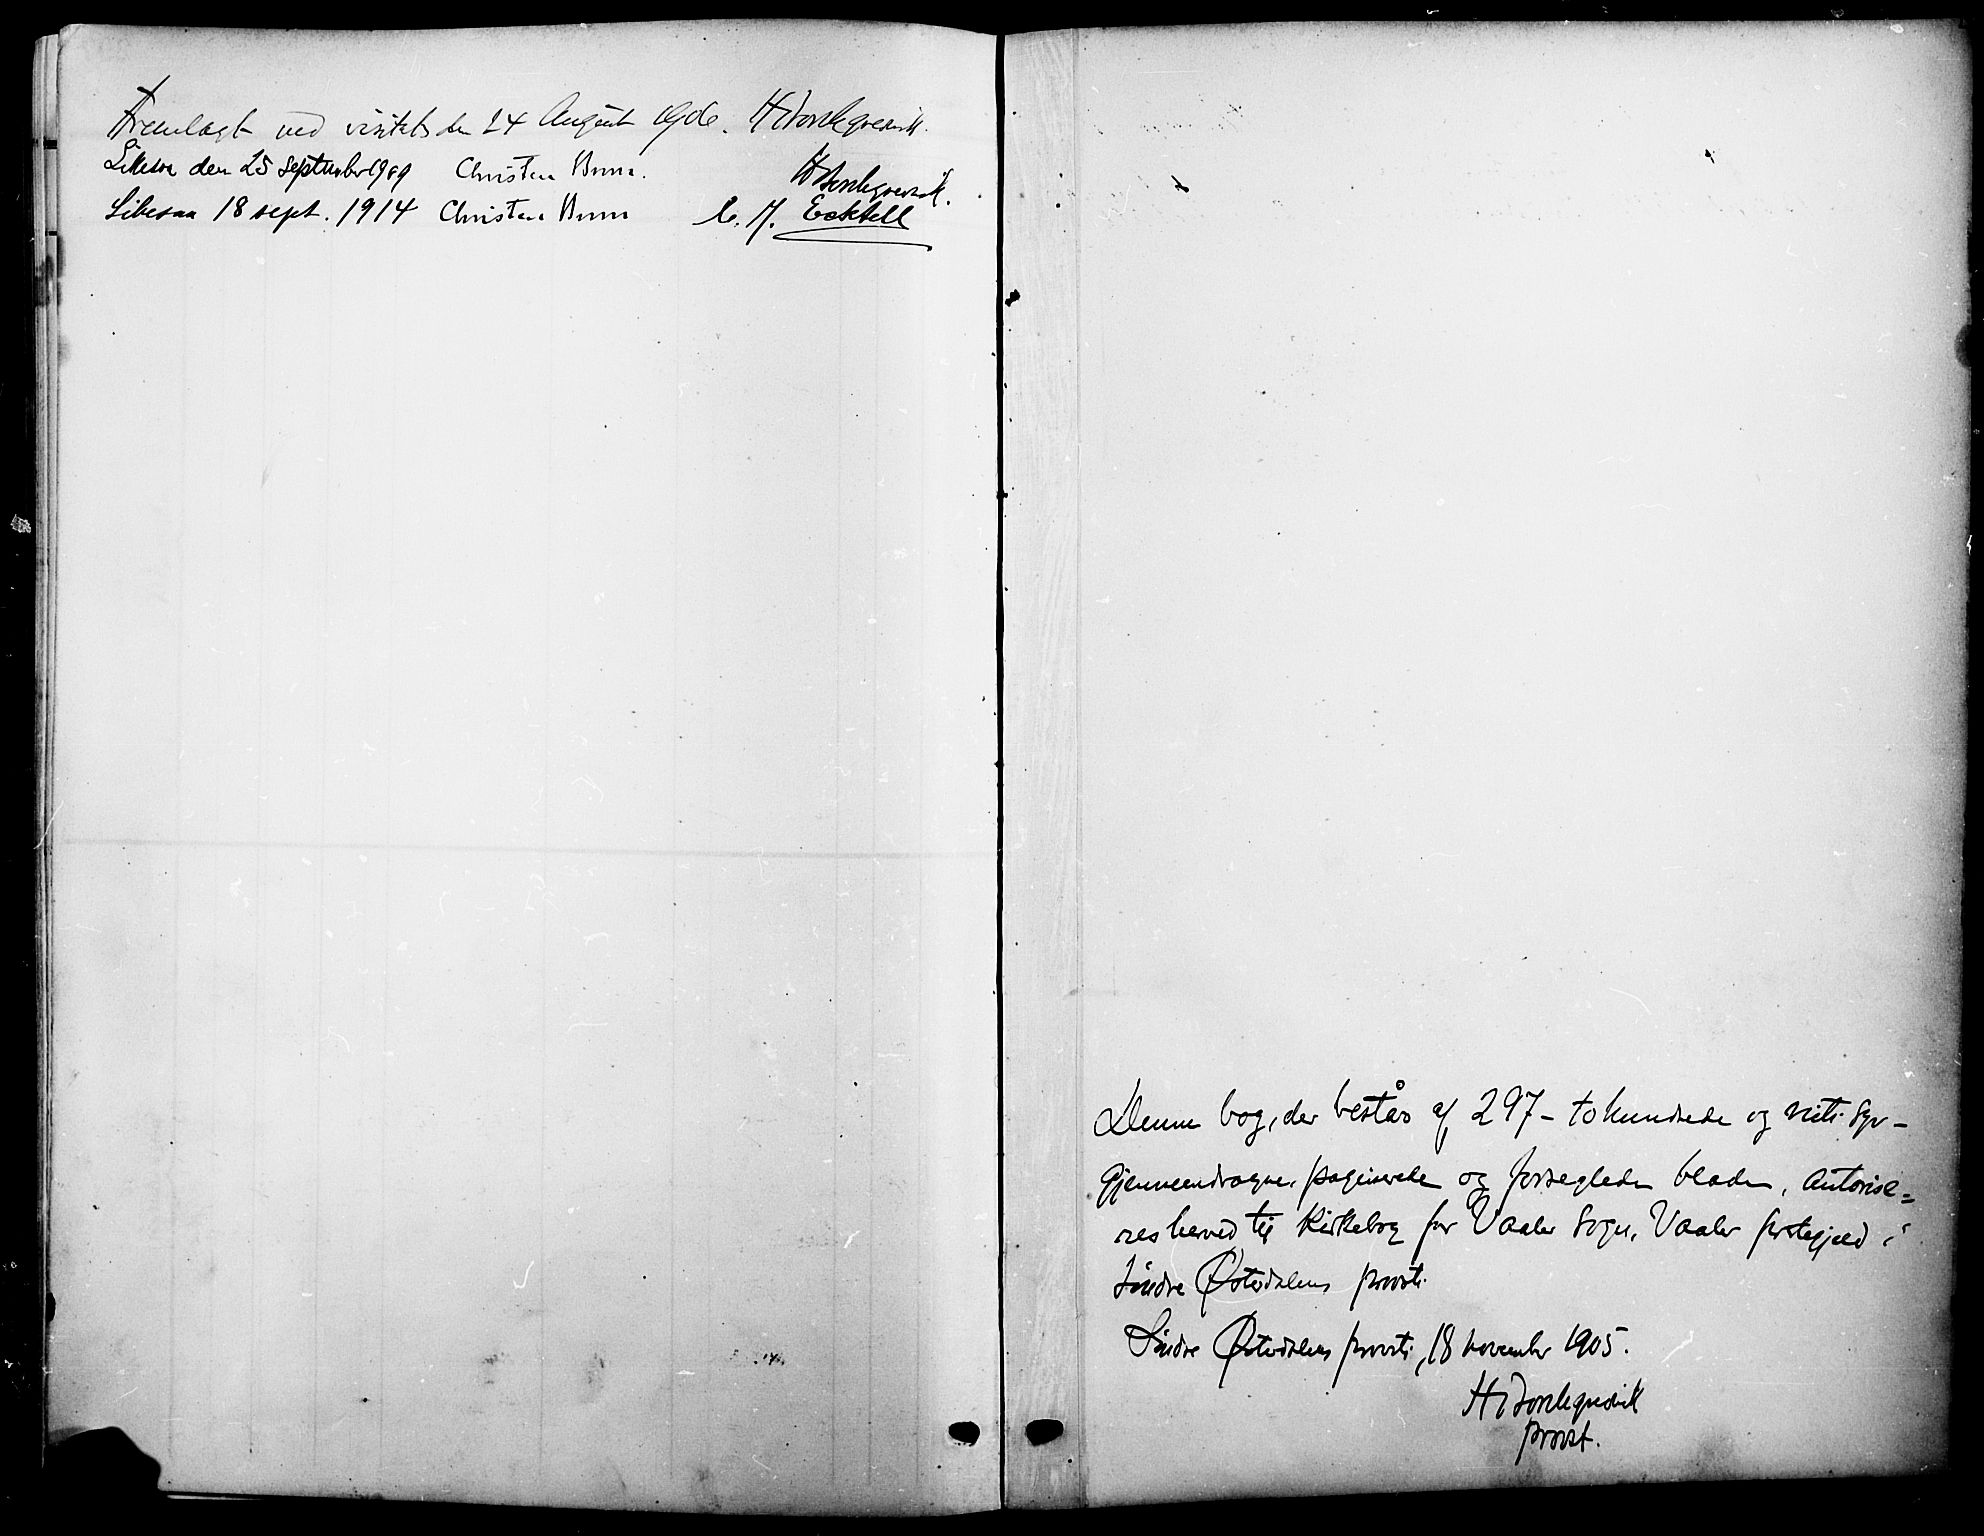 Fremlagt ved visitats den 24 August 1906. H Torskgredvik.
Ligesaa den 25 september 1909 Christen Brun.
H Torskgredvik.
Ligesaa 18 sept. 1914 Christen Brun C. J. Ecktell
Denne bog, der består af 297 - tohundrede og nitti syv -
gjennemdragne, paginerede og forseglede blade, autorise=
res herved til Kirkebog for Vaaler Sogn, Vaaler prestegjeld i
Søndre Østerdalens provsti.
Søndre Østerdalens provsti, 18 november 1905.
H Torskgredvik
provst.